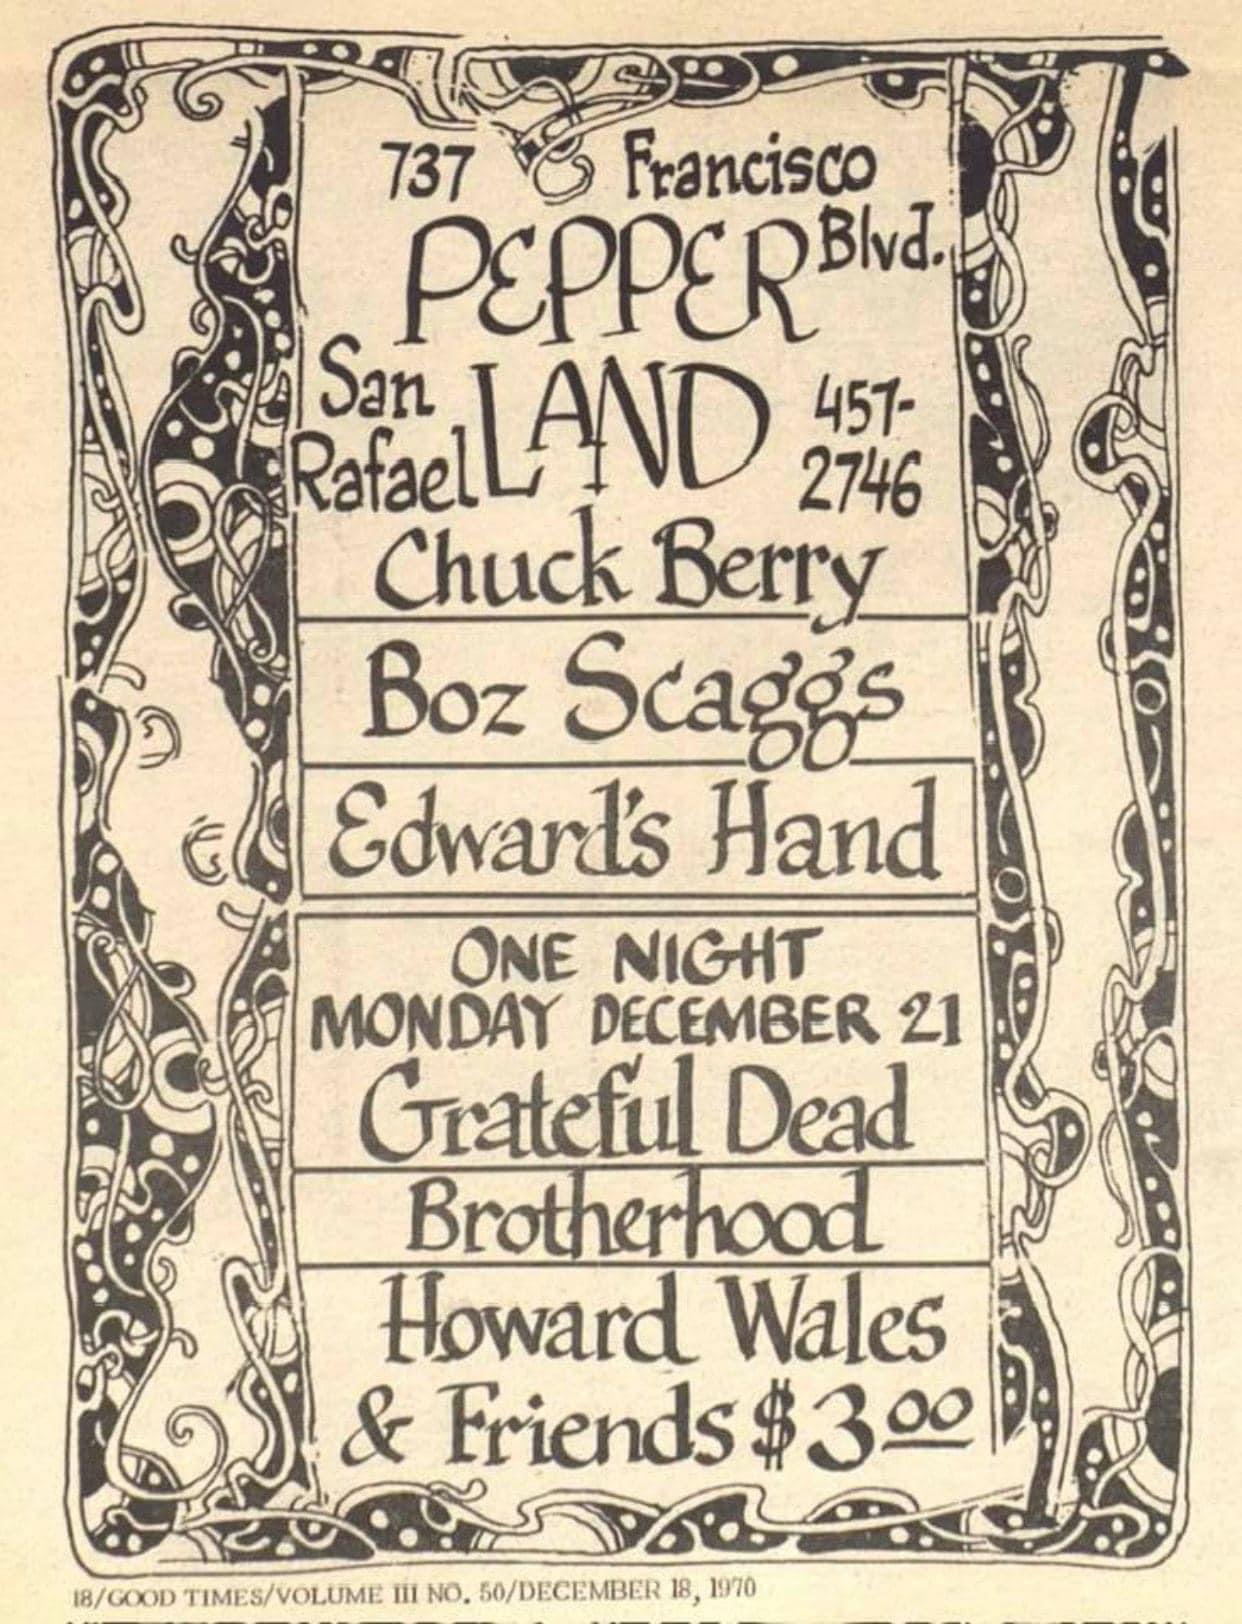 737 Francisco
PEPPER Blvd.
San LAND 457-
Rafael 2746
Chuck Berry
Boz Scaggs
Edward's Hand
ONE NIGHT
MONDAY DECEMBER 21
Grateful Dead
Brotherhood
Howard Wales
& Friends $3.00
18/GOOD TIMES/VOLUME III NO. 50/DECEMBER 18, 1970